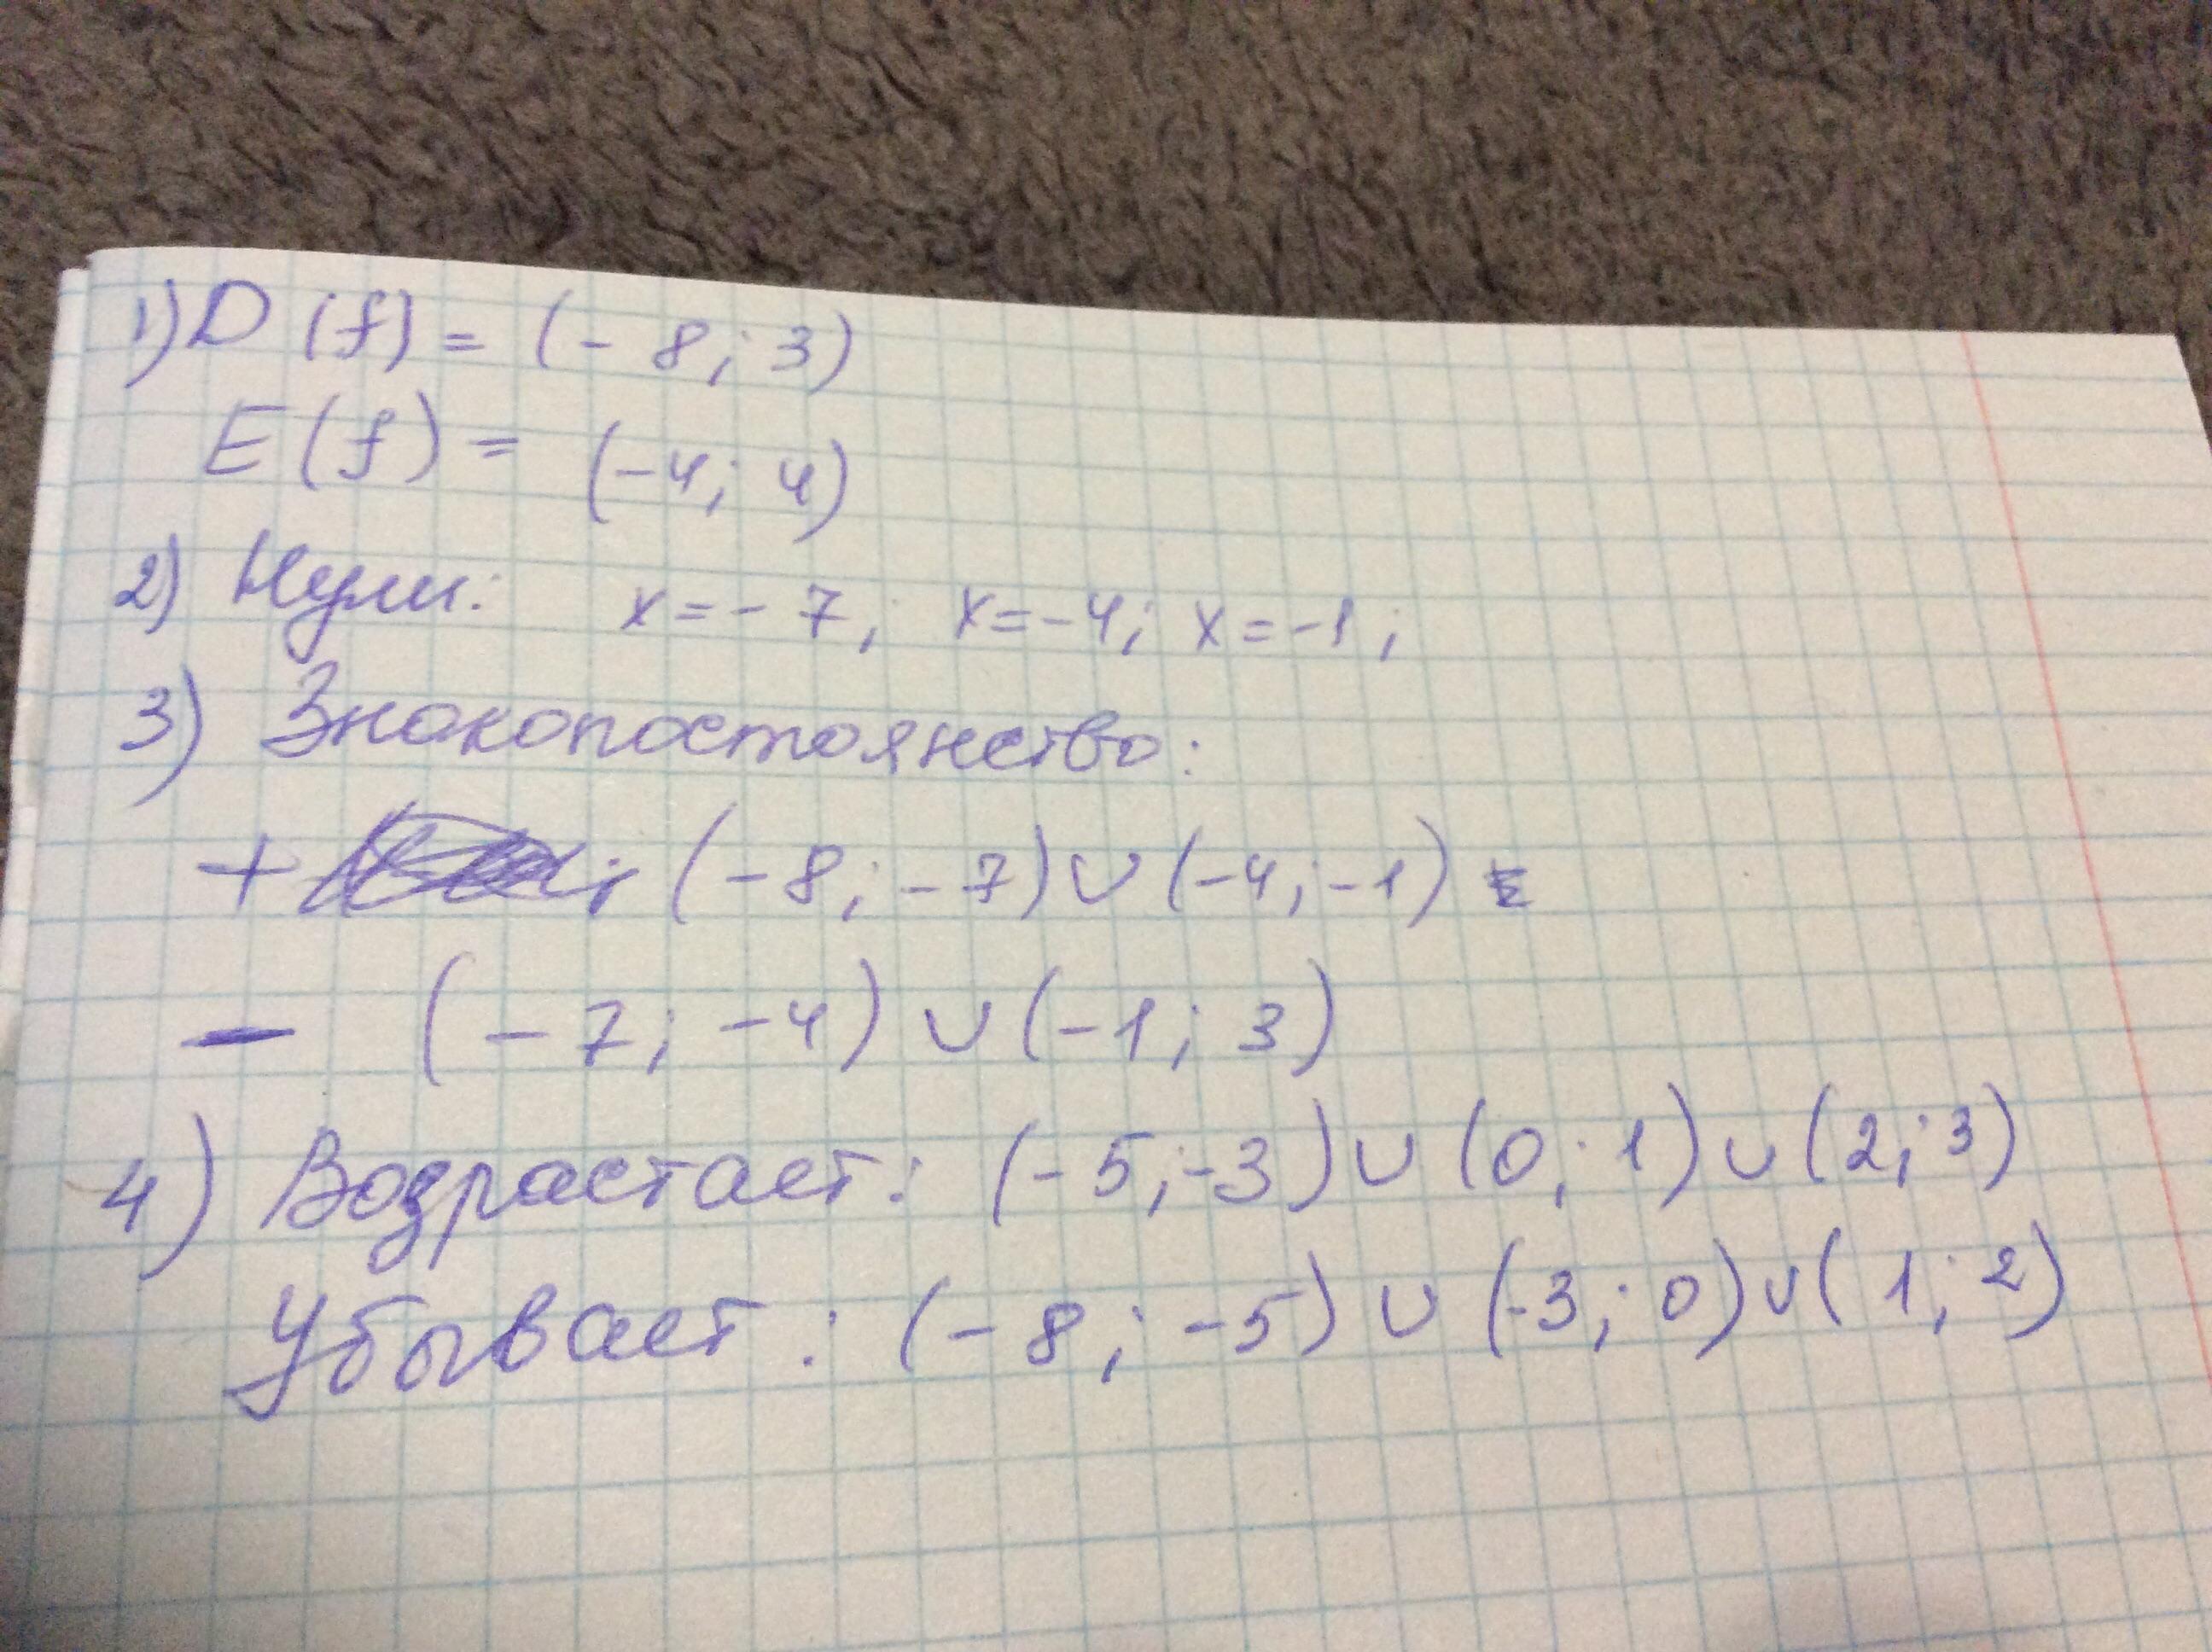 1) D (f) = (- 8; 3)
E (f) = (-4; 4)
2) Нули: x = - 7; x = -4; x = -1;
3) Знакопостоянство:
+ ; (-8; -7) ∪ (-4; -1)
- (-7; -4) ∪ (-1; 3)
4) Возрастает: (-5; -3) ∪ (0; 1) ∪ (2; 3)
Убывает: (-8; -5) ∪ (-3; 0) ∪ (1; 2)